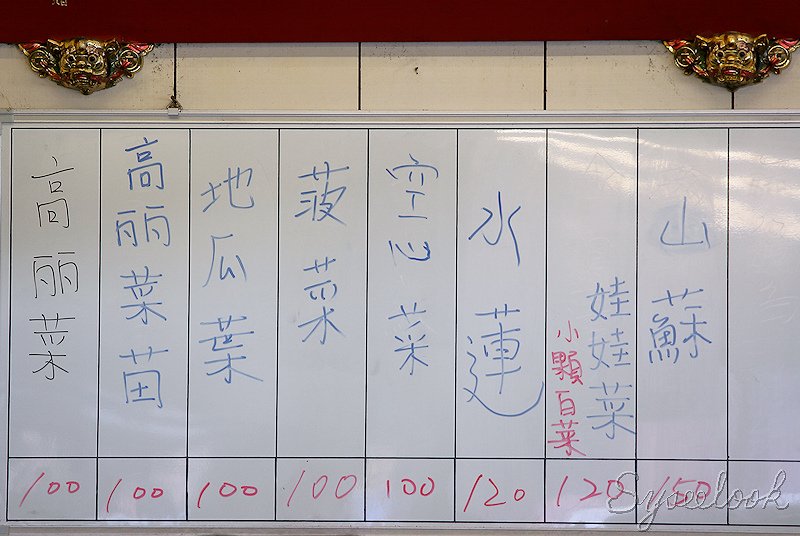 高丽菜
100
高丽菜苗
100
地瓜葉
100
菠菜
100
空心菜
100
水蓮
120
娃娃菜
小顆白菜
120
山蘇
150
Syseelook